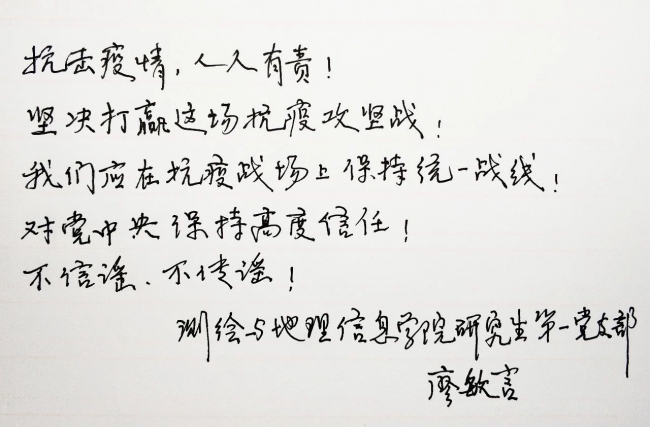 抗击疫情，人人有责！
坚决打赢这场抗疫攻坚战！
我们应在抗疫战场上保持统一战线！
对党中央保持高度信任！
不信谣、不传谣！
测绘与地理信息学院研究生第一党支部
廖敏言